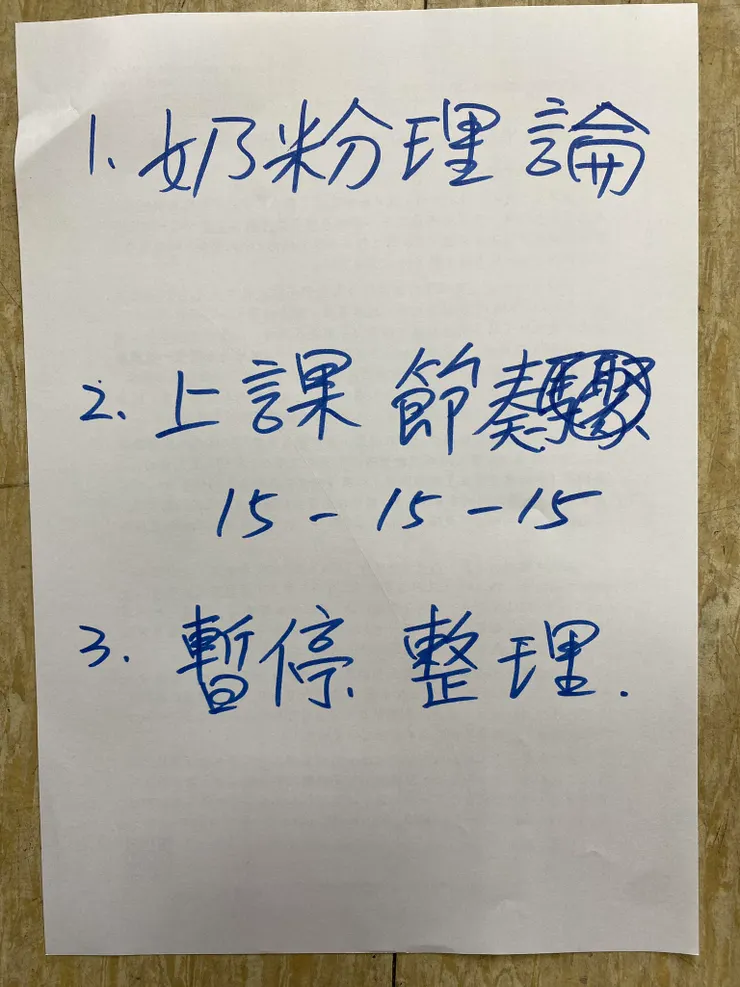 1. 奶粉理論
2. 上課 節奏
15 - 15 - 15
3. 暫停 整理.